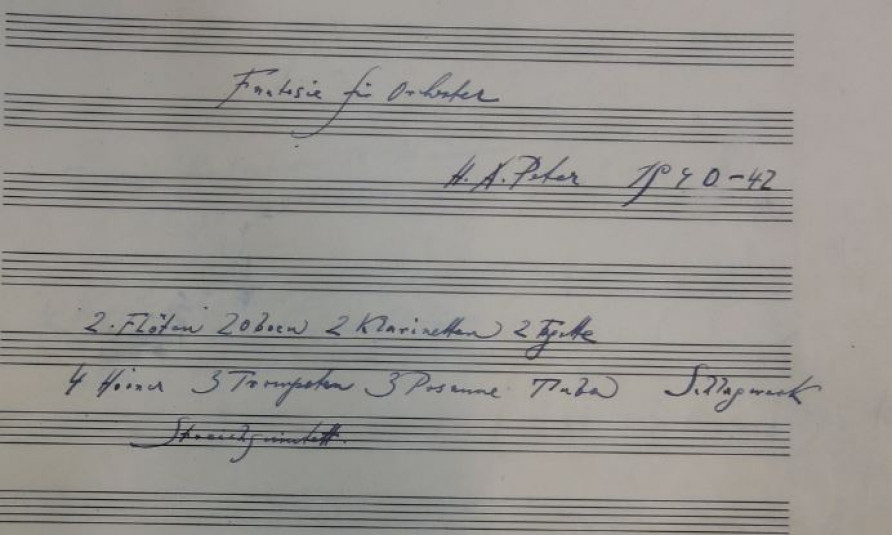 Fantasie für Orchester
H. A. Peter 1940-42
2. Flöten 2 Oboen 2 Klarinetten 2 Fgotte
4 Hörner 3 Trompeten 3 Posaune Tuba Schlagwerk
Streichquintett.